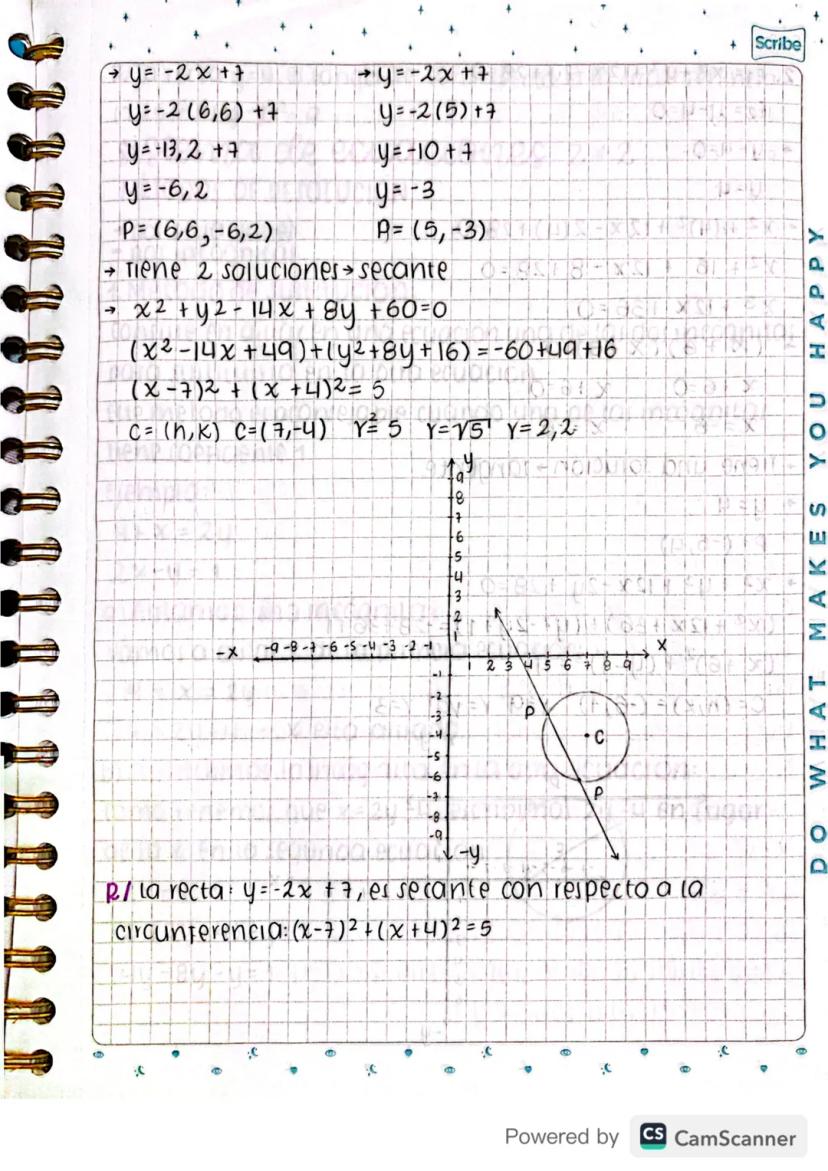 Scribe
→ y = -2x + 7 → y = -2x + 7
y = -2(6,6) + 7 y = -2(5) + 7
y = -13,2 + 7 y = -10 + 7
y = -6,2 y = -3
P = (6,6, -6,2) P = (5, -3)
→ Tiene 2 soluciones → secante
→ x² + y² - 14x + 8y + 60 = 0
(x² - 14x + 49) + (y² + 8y + 16) = -60 + 49 + 16
(x - 7)² + (x + 4)² = 5
C = (h, k) C = (7, -4) r² = 5 r = √5 r = 2,2
y
9
8
7
6
5
4
3
2
1
-x -9 -8 -7 -6 -5 -4 -3 -2 -1 1 2 3 4 5 6 7 8 9 x
-1
-2
-3 P
-4 C
-5
-6
-7 P
-8
-9
-y
R/ La recta: y = -2x + 7, es secante con respecto a la
circunferencia: (x - 7)² + (x + 4)² = 5
DO WHAT MAKES YOU HAPPY
Powered by CS CamScanner